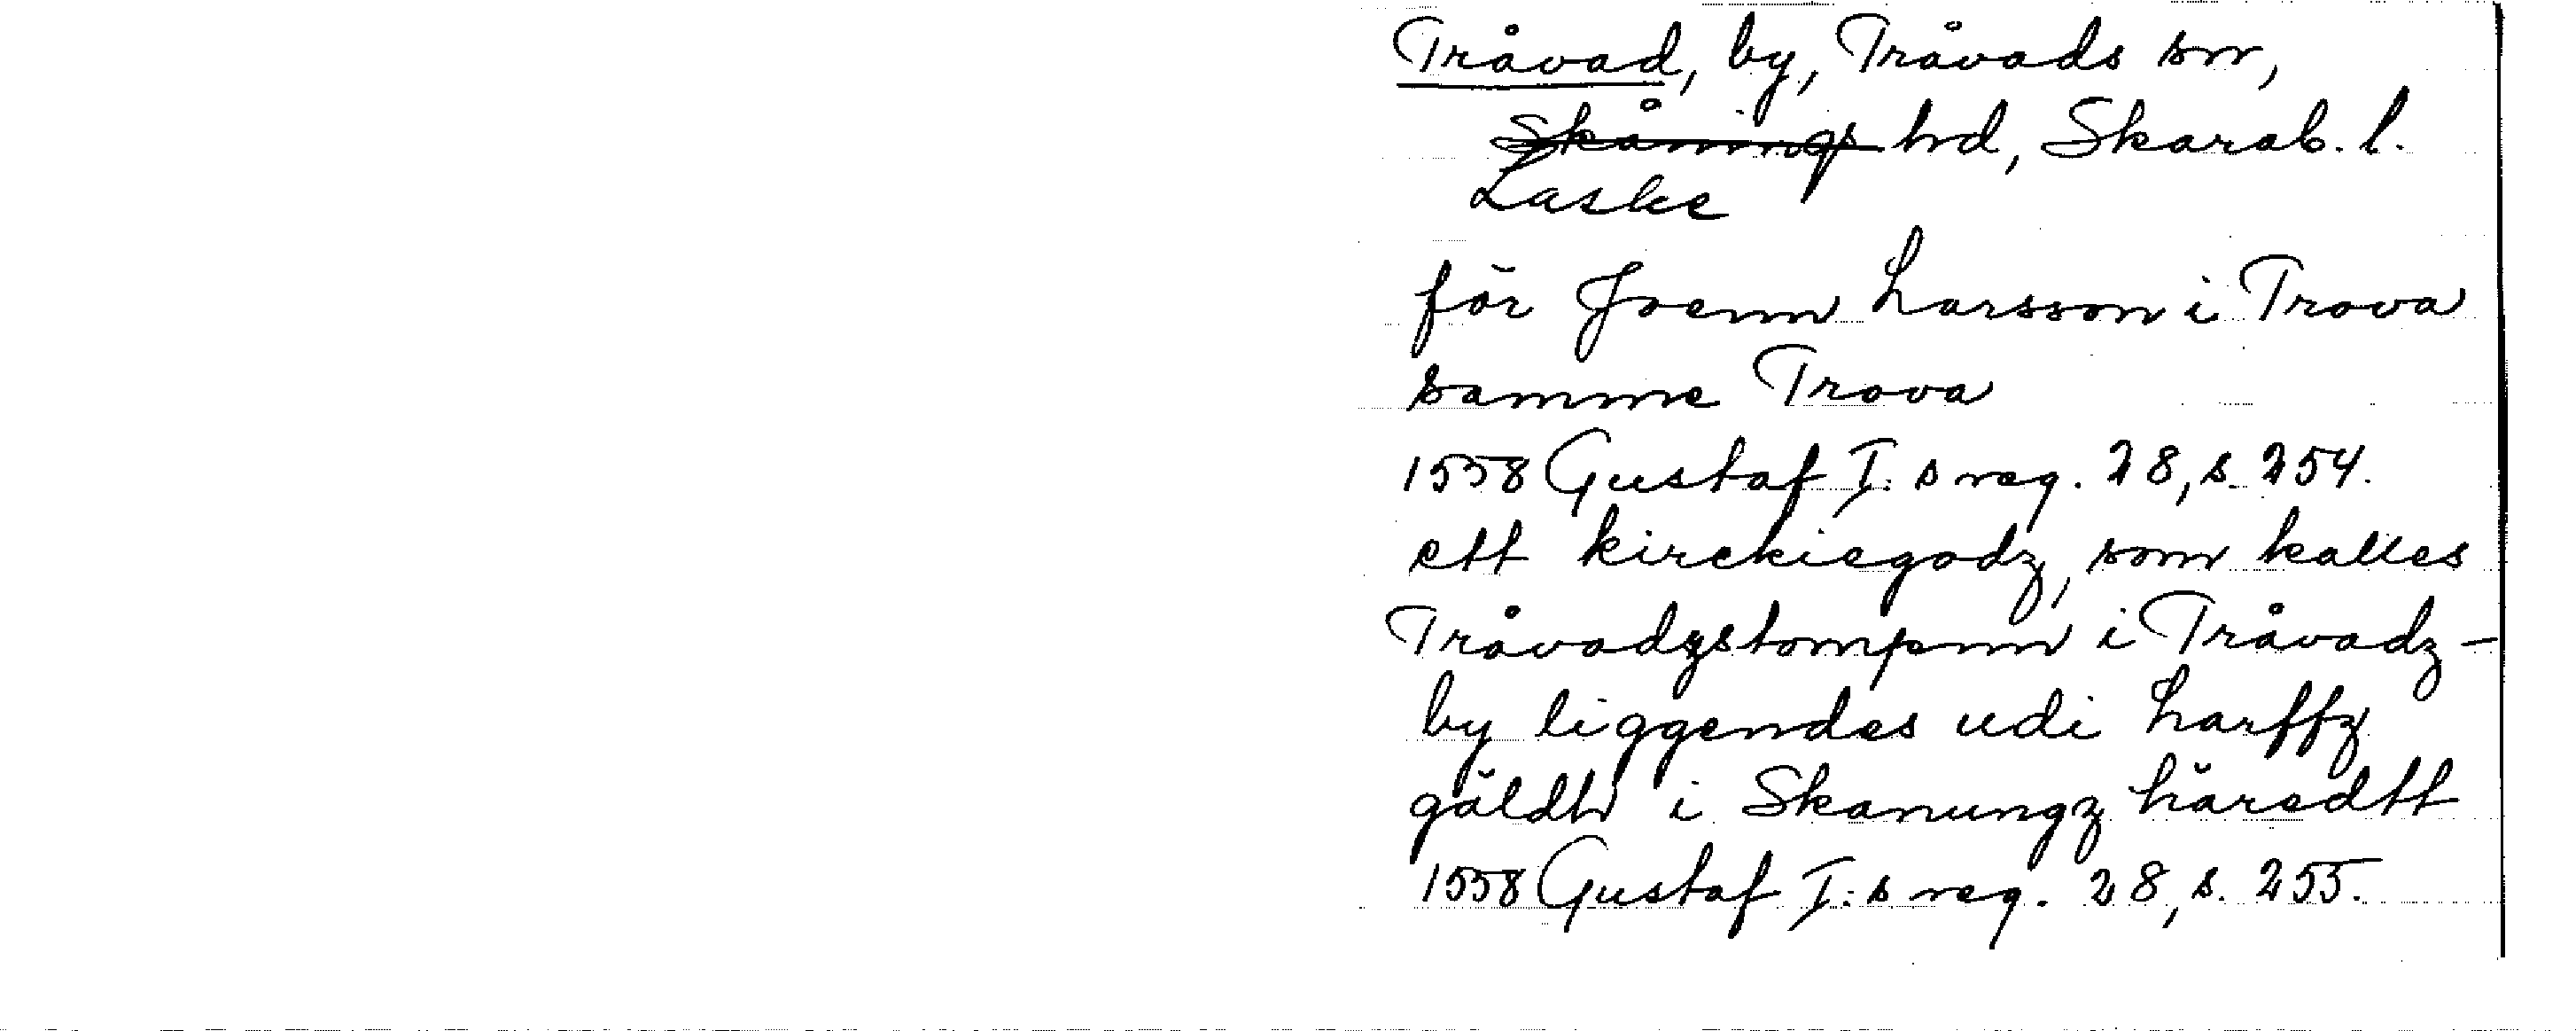 Tråvad, by, Tråvads sn,
Skånings hd, Skarab. l.
Laske
för Joenn Larsson i Trova
samme Trova
1558 Gustaf I:s reg. 28, s. 254.
ett kirckiegodz, som kalles
Tråvadzstompnn i Tråvadz-
by liggendes udi Larffz
gäldh i Skanungz häredtt
1558 Gustaf I:s reg. 28, s. 255.